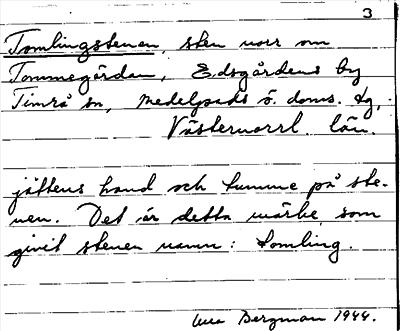 3
Tomlingstenen, sten norr om
Tommegårdan, Edsgårdens by
Timrå sn, Medelpads ö. doms. tg,
Västernorrl. län.
jättens hand och tumme på ste-
nen. Det är detta märke som
givit stenen namn: tomling.
Bergman 1944.